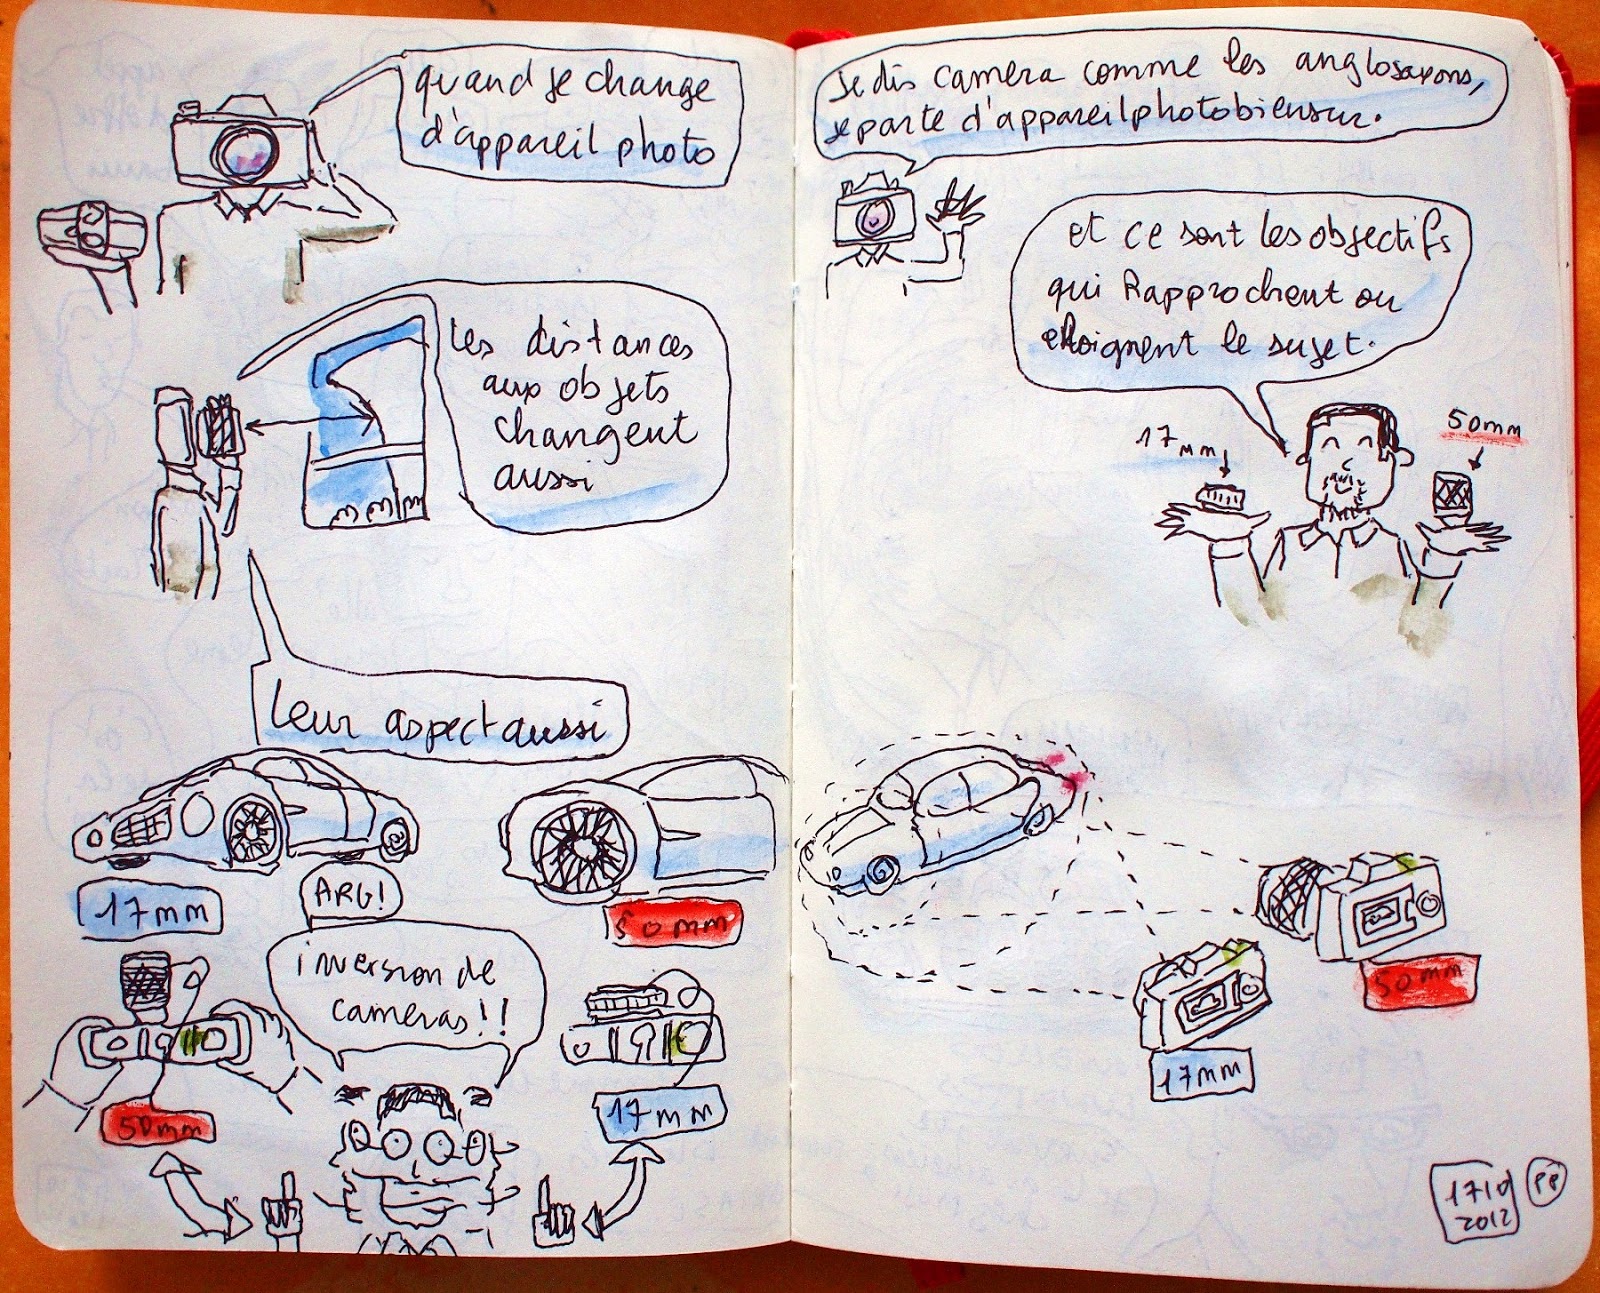 quand je change
d'appareil photo
les distances
aux objets
changent
aussi
leur aspect aussi
17mm
50mm
ARG!
inversion de
cameras!!
50mm
17mm
Je dis camera comme les anglosaxons,
je parle d'appareil photo bien sur.
et ce sont les objectifs
qui Rapprochent ou
eloignent le sujet.
17mm
50mm
50mm
17mm
1710
2012
PP